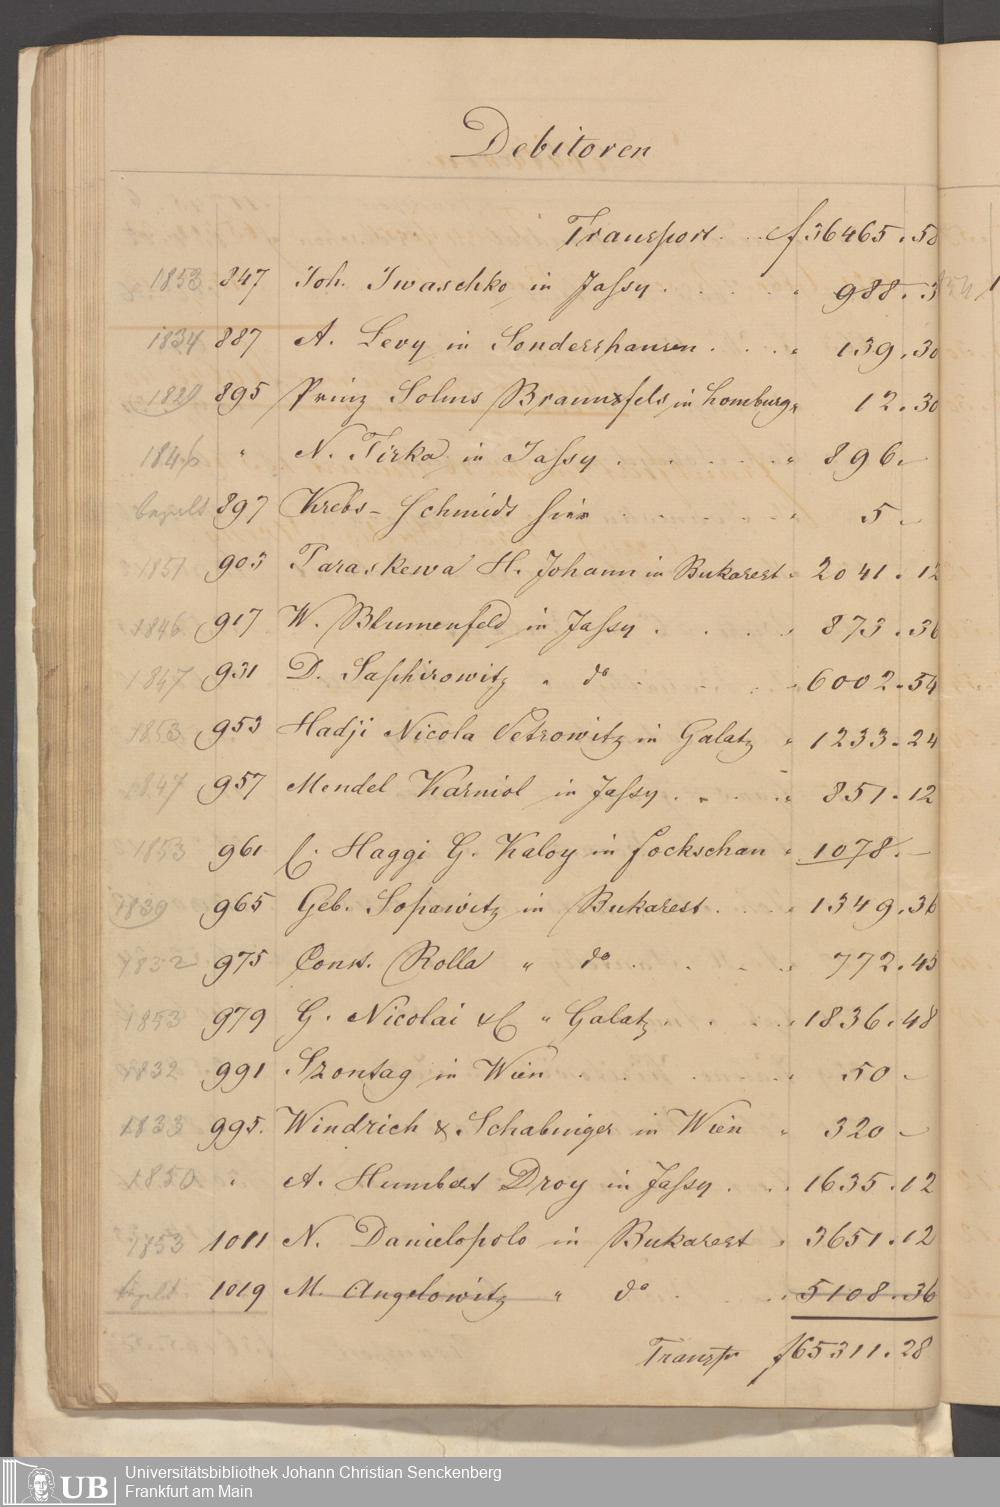 Debitoren
Transport . . f 36465 . 50
1853 847 Joh. Iwaschko in Jassy . . . . . " 988 . 3
1834 887 A. Levy in Sondershausen . . . . " 139 . 30
1829 895 Prinz Solms Braunsfels in Homburg " 12 . 30
1846 " N. Tirka in Jassy . . . . . " 896 . –
bezalt 897 Krebs-Schmidt hier . . . . . " 5 . –
1851 905 Paraskewa H. Johann in Bukarest " 2041 . 12
1846 917 W. Blumenfeld in Jassy . . . . " 873 . 36
1847 931 D. Saphirowitz " do . . . . " 6002 . 54
1853 953 Hadji Nicola Petrowitz in Galatz " 1233 . 24
1847 957 Mendel Karniol in Jassy . . . . " 851 . 12
1853 961 C. Haggi G. Kaloy in Fockschan " 1078 . –
1839 965 Geb. Sopawitz in Bukarest . . . " 1349 . 36
1832 975 Const. Rolla " do . . . . " 772 . 45
1853 979 G. Nicolai & C " Galatz . . . . " 1836 . 48
1832 991 Szontag in Wien . . . . . " 50 . –
1833 995. Windrich & Schabinger in Wien " 320 –
1850 " A. Humbert Droy in Jassy . . . 1635 . 12
1853 1011 N. Danielopolo in Bukarest " 3651 . 12
bezalt 1019 M. Angelowitz " do . . . " 5108 . 36
Transp f 65311 . 28
UB
Universitätsbibliothek Johann Christian Senckenberg
Frankfurt am Main